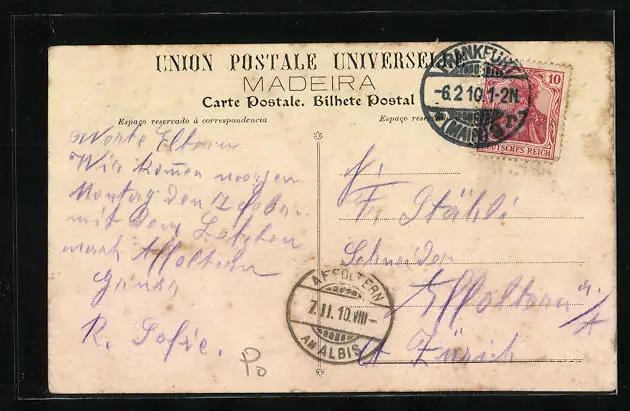 UNION POSTALE UNIVERSELLE
MADEIRA
Carte Postale. Bilhete Postal
Espaço reservado á correspondencia
Espaço reser
FRANKFURT
-6.2.10.1-2N.
(MAIN)
10
DEUTSCHES REICH
Werte Eltern
Wir komen morgen
Montag den 7 Febr.
mit dem Letzten
nach Affoltern
Gruss
R. Sofie.
Po
F. Stähli
Schneider
Affoltern a/A
Kt Zürich
AFFOLTERN
7.II.10.VIII-
AM ALBIS